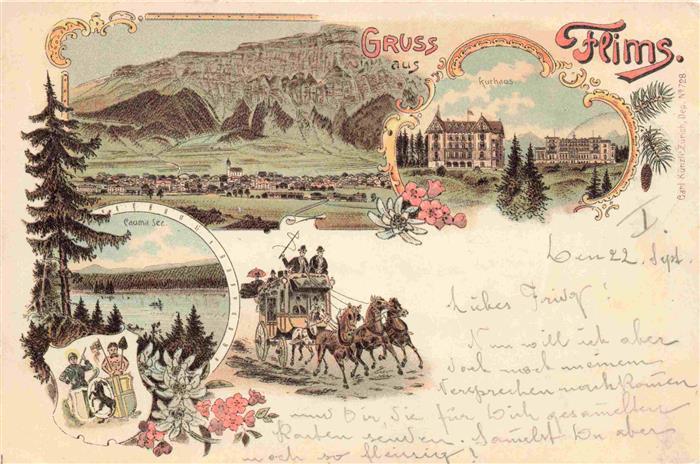 Gruss
aus
Flims.
Kurhaus
Cauma See.
Carl Künzli, Zürich, Dep. No 728.
I.
Den 22. Sept.
Liebes !
Nun will ich aber
doch noch meinem
Versprechen nachkommen
und Dir die für Dich gesammelten
Karten senden. Samelst Du aber
noch so fleissig!